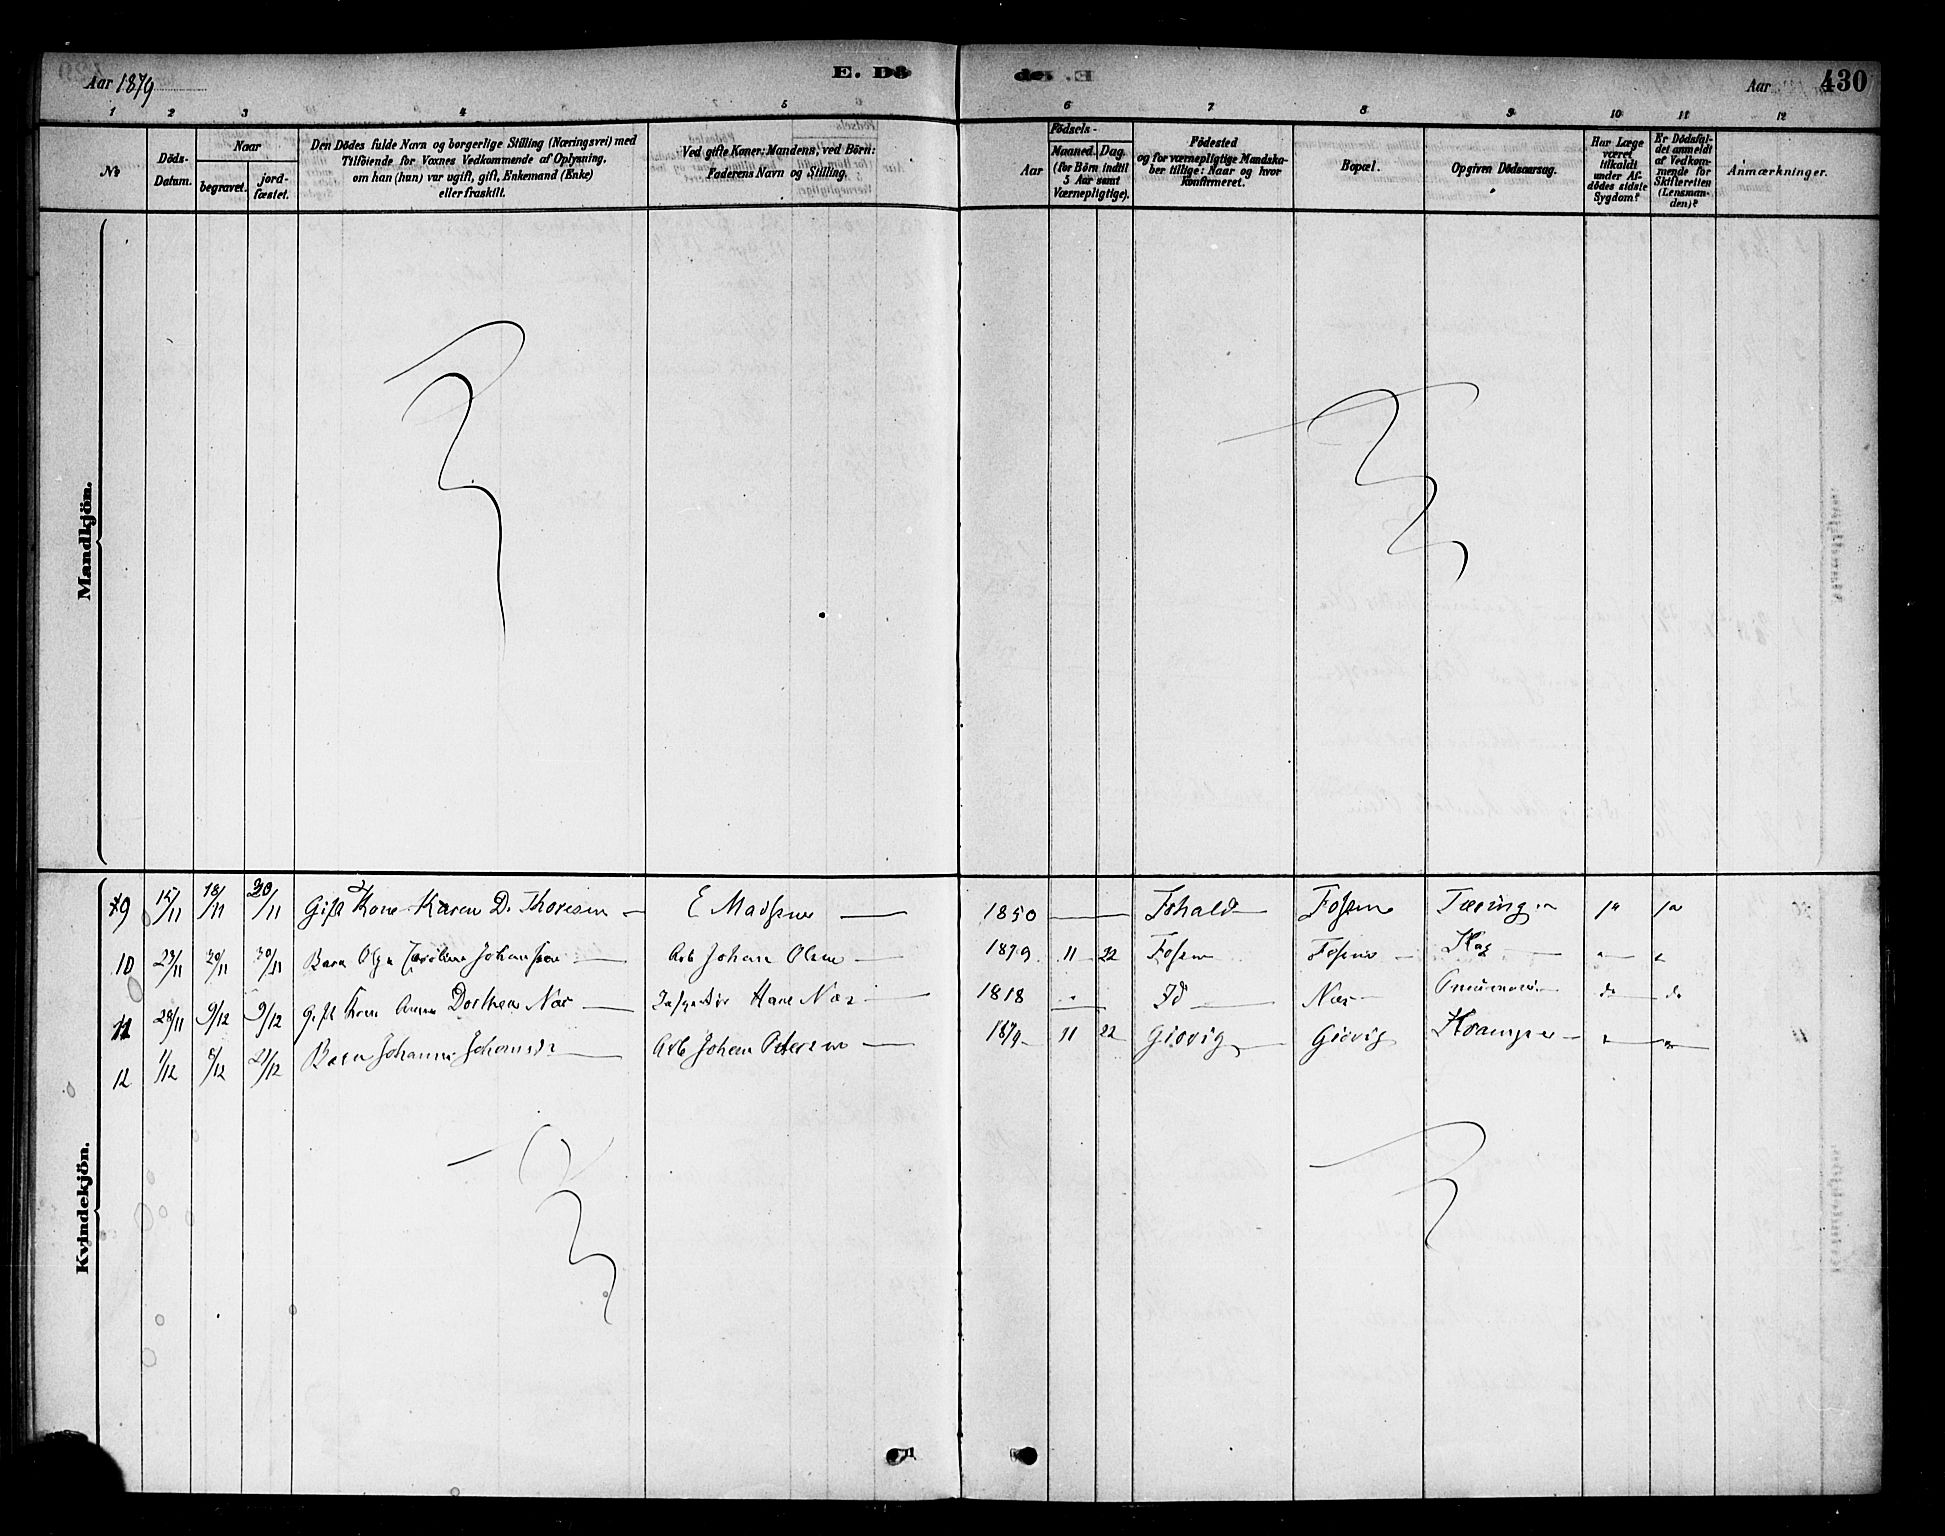 Aar 1879
E. Dö
Aar
430
1 2 3 4 5 6 7 8 9 10 11 12
No
Döds-Datum.
Naar
begravet.
jord-fæstet.
Den Dödes fulde Navn og borgerlige Stilling (Næringsvei) med
Tilföiende for Voxnes Vedkommende af Oplysning,
om han (hun) var ugift, gift, Enkemand (Enke)
eller fraskilt.
Ved gifte Koner: Mandens, ved Börn:
Faderens Navn og Stilling.
Födsels-
Aar
Maaned. Dag.
(for Börn indtil
5 Aar samt
Værnepligtige).
Födested
og for værnepligtige Mandska-
ber tillige: Naar og hvor
konfirmeret.
Bopæl.
Opgiven Dödsaarsag.
Har Læge
været
tilkaldt
under Af-
dödes sidste
Sygdom?
Er Dödsfal-
det anmeldt
af Vedkom-
mende for
Skifteretten
(Lensman-
den)?
Anmærkninger.
Mandkjön.
Kvindekjön.
9 15/11 18/11 30/11 Gift Kone Karen D. Thoresen E Madsens 1850 Fossen Tæring ja ja
10 23/11 30/11 30/11 Barn Olga Johansen Arb Johan Olsen 1879 11 22 Fossen Fossen
11 28/11 9/12 9/12 Gift Kone Dorthea Næs Hans Næs 1818 Id Næs do do
12 1/12 8/12 21/12 Barn Johanne Arb Johan Petersen 1879 11 22 Giövig Giövig Kramper